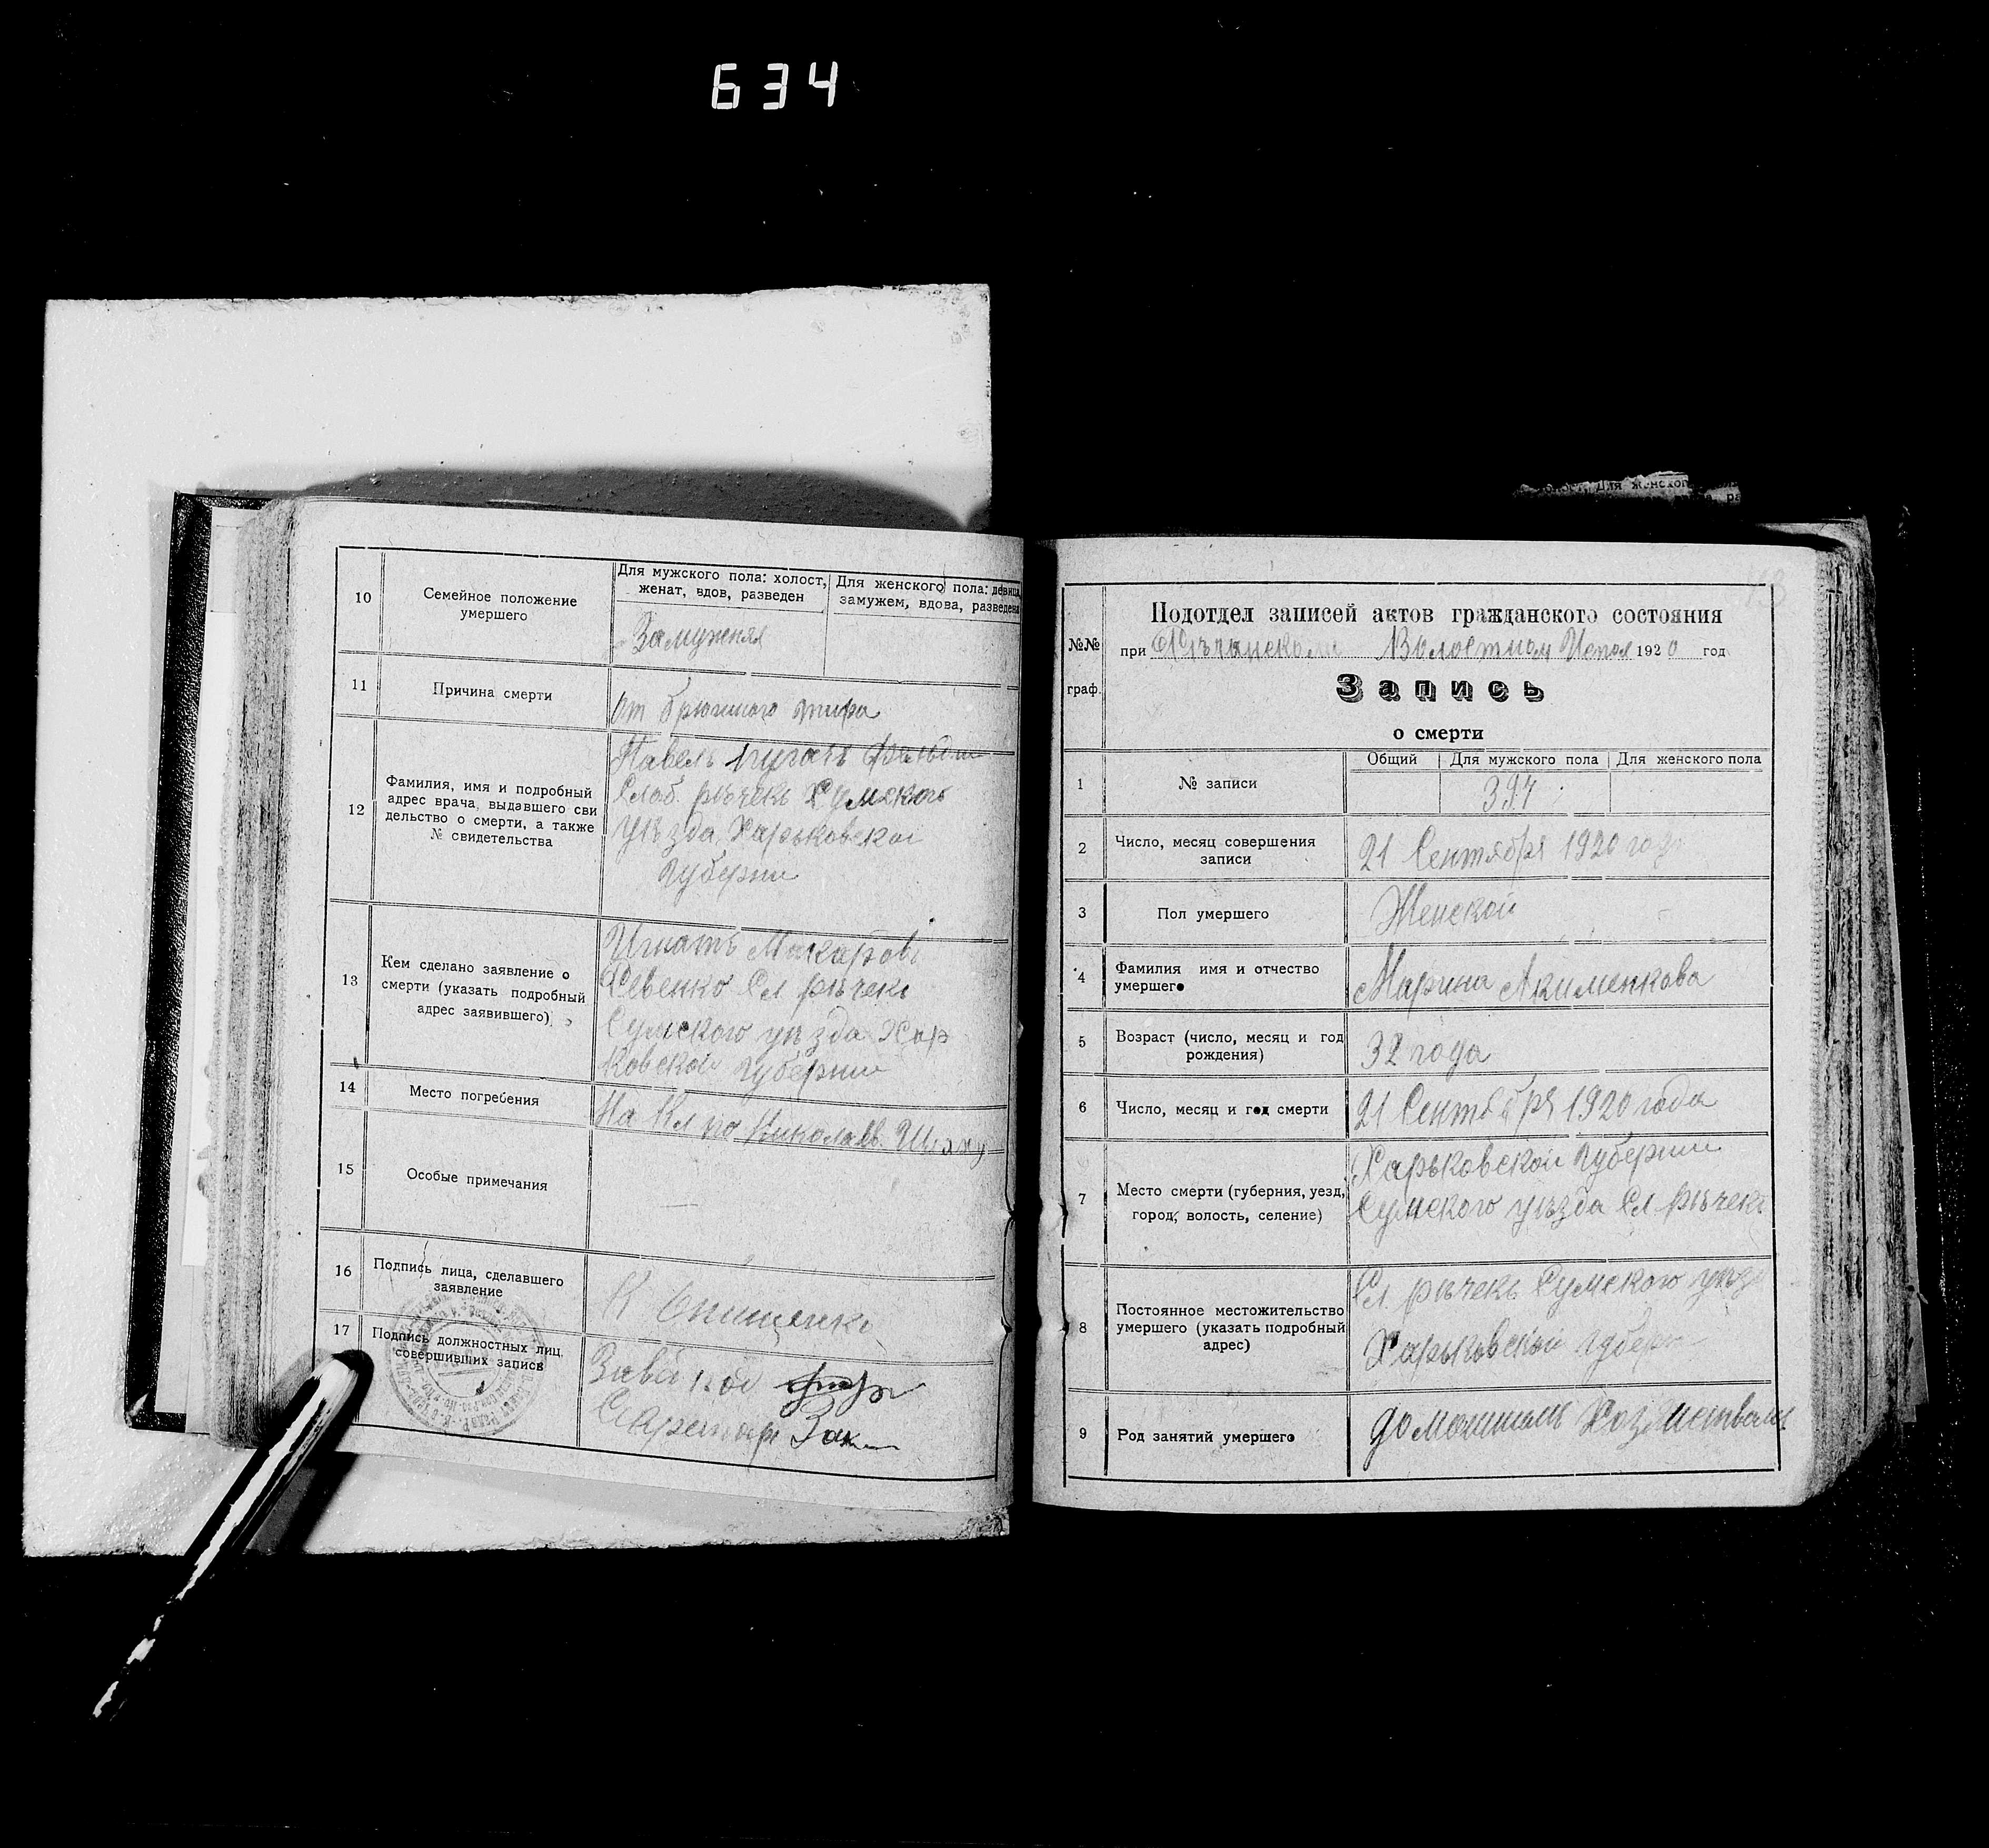 634
10
Семейное положение
умершего
Для мужского пола: холост,
женат, вдов, разведен
Для женского пола: девица,
замужем, вдова, разведена
Замужняя
11
Причина смерти
от брюшного тифа
12
Фамилия, имя и подробный
адрес врача, выдавшего сви
дельство о смерти, а также
№ свидетельства
Павелъ Пугачъ
Слаб. рѣчекъ Сумского
уѣзда Харьковской
Губерни
13
Кем сделано заявление о
смерти (указать подробный
адрес заявившего)
Игнатъ Макаровъ
Севенко Сл рѣчекъ
Сумского уѣзда Хар
ковской Губернии
14
Место погребения
На Кл по Николаев.
15
Особые примечания
16
Подпись лица, сделавшего
заявление
К
17
Подпись должностных лиц,
совершивших запись
Секретарь
№№
граф.
Подотдел записей актов гражданского состояния
при Рѣчанском Волостном Испол 1920 год
Запись
о смерти
1
№ записи
Общий
Для мужского пола
Для женского пола
397
2
Число, месяц совершения
записи
21 Сентября 1920 года
3
Пол умершего
Женской
4
Фамилия имя и отчество
умершего
Марина Акименкова
5
Возраст (число, месяц и год
рождения)
32 года
6
Число, месяц и год смерти
21 Сентября 1920 года
7
Место смерти (губерния, уезд,
город, волость, селение)
Харьковской Губернии
Сумского уѣзда Сл. рѣчекъ
8
Постоянное местожительство
умершего (указать подробный
адрес)
Сл. рѣчекъ Сумского уѣзд
Харьковской Губерн
9
Род занятий умершего